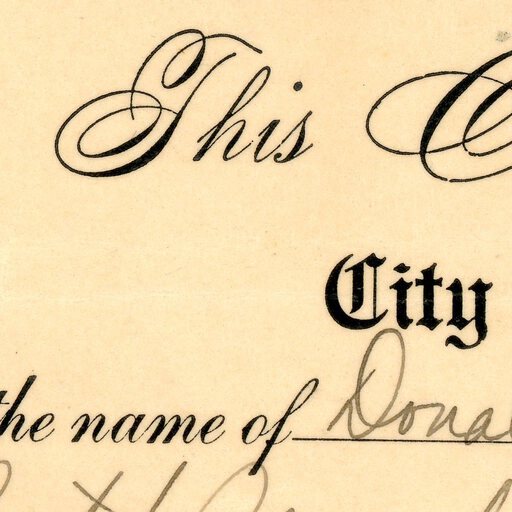 This
City
the name of Dona